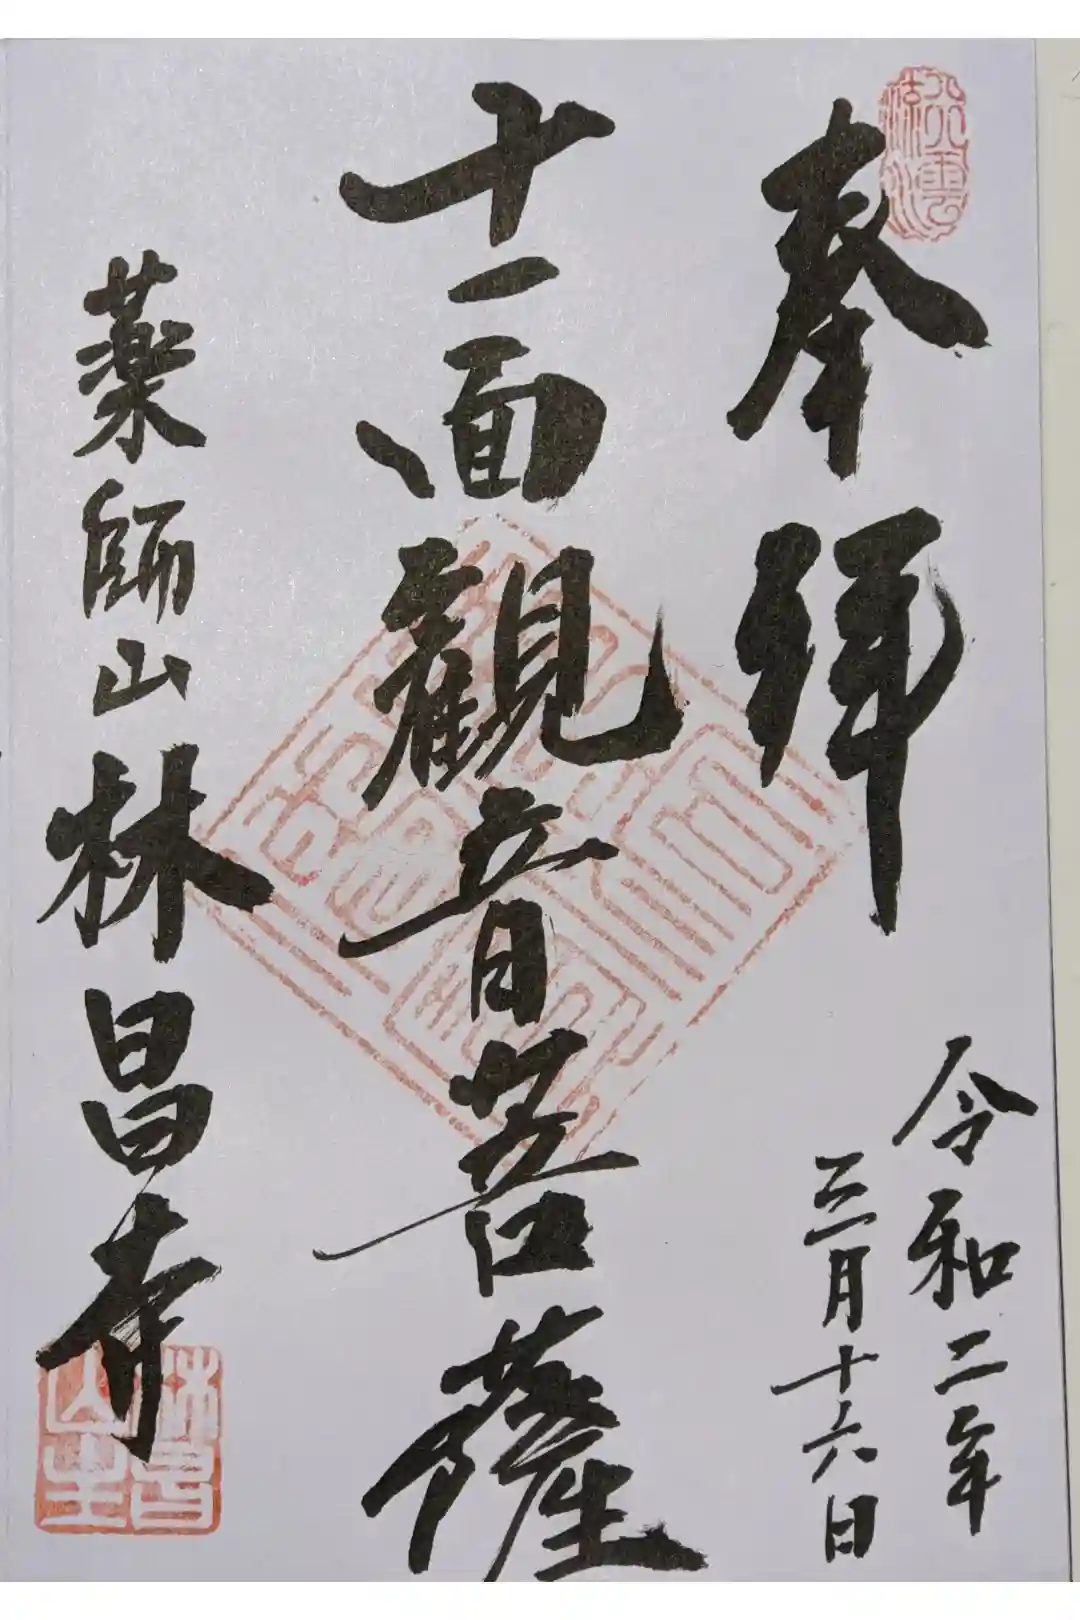 奉拝
令和二年
三月十六日
十一面観音菩薩
薬師山林昌寺